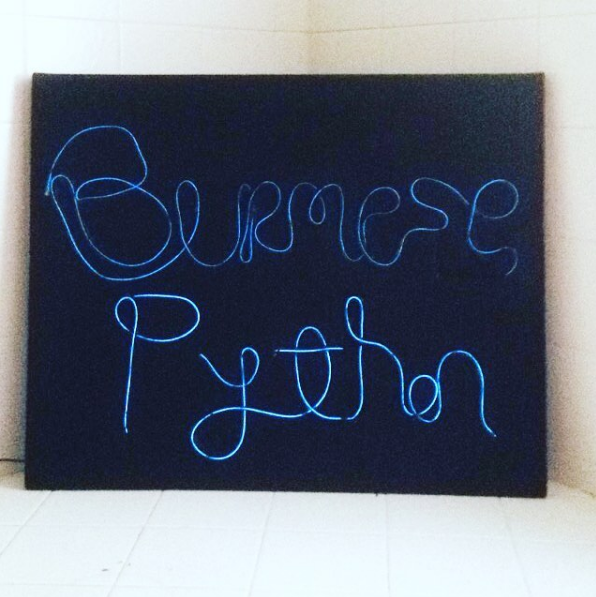 Burmese
Python